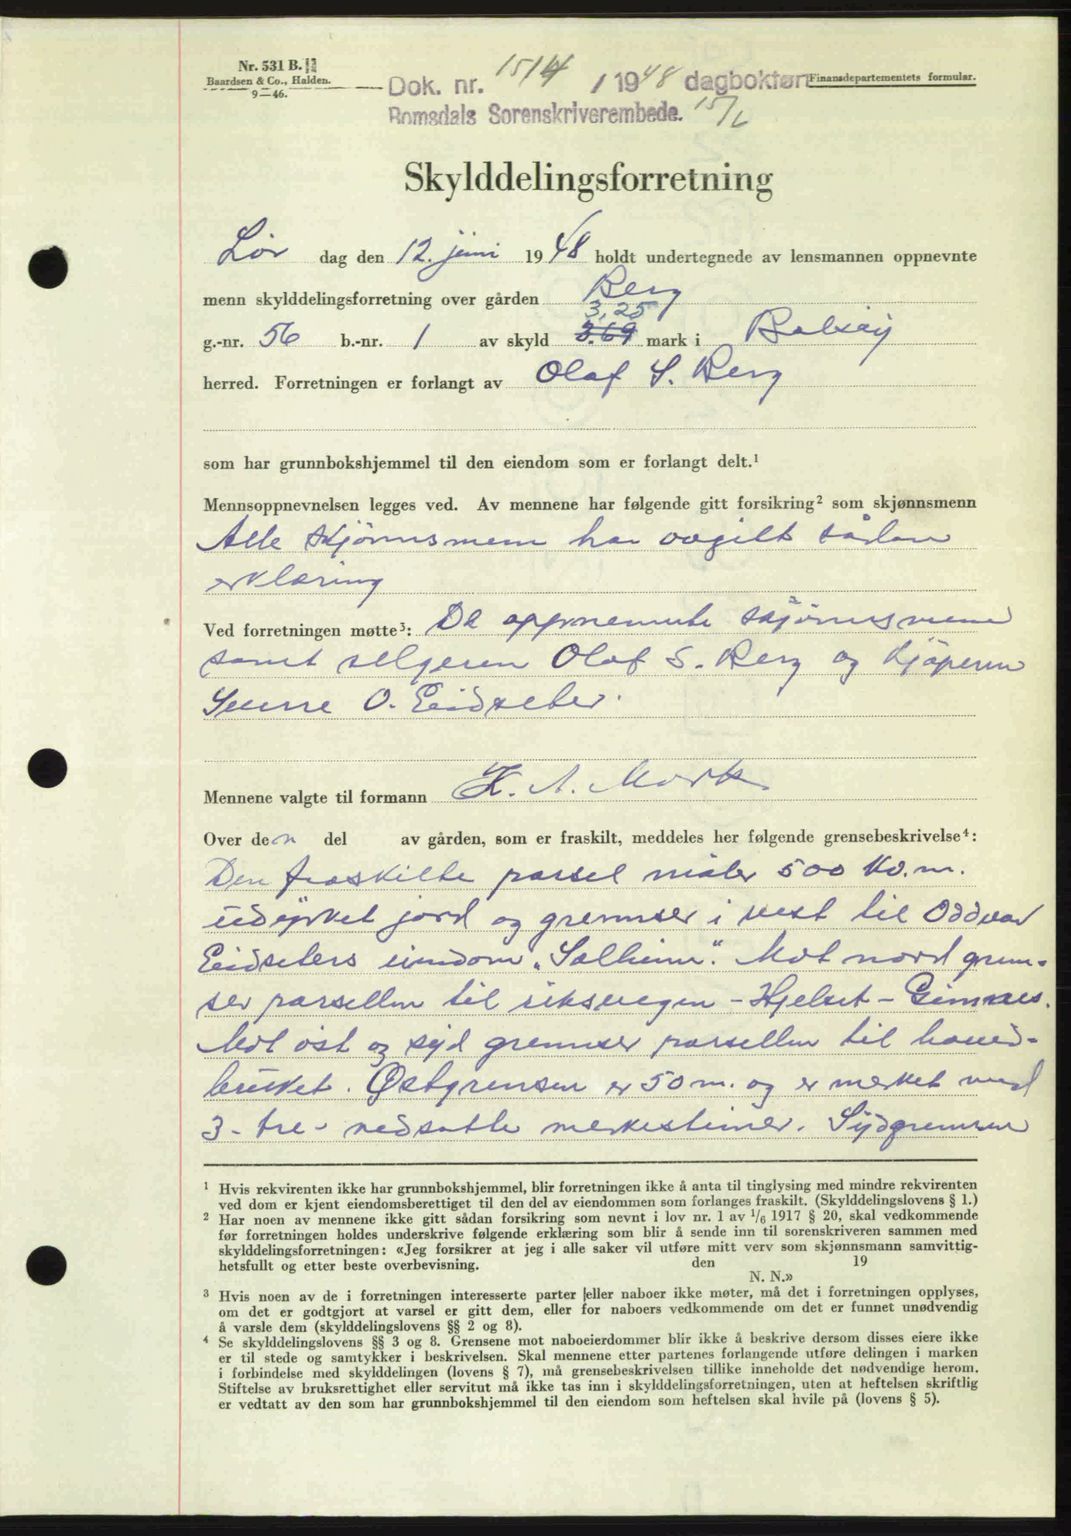 Nr. 531 B.
Baardsen & Co., Halden.
9—46.
Dok. nr. 1514 / 1948 dagbokført
Finansdepartementets formular.
Romsdals Sorenskriverembede. 15/6
Skylddelingsforretning
Lør dag den 12. juni 1948 holdt undertegnede av lensmannen oppnevnte
menn skylddelingsforretning over gården Berg
3,25
g.-nr. 56 b.-nr. 1 av skyld 3.69 mark i Bolsøy
herred. Forretningen er forlangt av Olaf S. Berg
som har grunnbokshjemmel til den eiendom som er forlangt delt.¹
Mennsoppnevnelsen legges ved. Av mennene har følgende gitt forsikring² som skjønnsmenn
Alle skjönnsmenn har avgitt sådan
erklæring
Ved forretningen møtte³: De oppnemnte skjönnsmenn
samt selgeren Olaf S. Berg og kjöperen
O. Eidseter.
Mennene valgte til formann K. A. Mork
Over den del av gården, som er fraskilt, meddeles her følgende grensebeskrivelse⁴:
Den fraskilte parsel måler 500 kv.m.
udyrket jord og grennser i vest til Oddvar
Eidseters eiendom "Solheim". Mot nord grenn-
ser parsellen til riksvegen - Hjelset - Gimnes.
Mot öst og syd grennser parsellen til hoved-
bruket. Østgrensen er 50 m. og er merket med
3 - tre - nedsatte merkesteiner. Sydgrensen
¹ Hvis rekvirenten ikke har grunnbokshjemmel, blir forretningen ikke å anta til tinglysing med mindre rekvirenten
ved dom er kjent eiendomsberettiget til den del av eiendommen som forlanges fraskilt. (Skylddelingslovens § 1.)
² Har noen av mennene ikke gitt sådan forsikring som nevnt i lov nr. 1 av ¹/₆ 1917 § 20, skal vedkommende
før forretningen holdes underskrive følgende erklæring som blir å sende inn til sorenskriveren sammen med
skylddelingsforretningen: «Jeg forsikrer at jeg i alle saker vil utføre mitt verv som skjønnsmann samvittig-
hetsfullt og etter beste overbevisning. den 19
N. N.»
³ Hvis noen av de i forretningen interesserte parter eller naboer ikke møter, må det i forretningen opplyses,
om det er godtgjort at varsel er gitt dem, eller for naboers vedkommende om det er funnet unødvendig
å varsle dem (skylddelingslovens §§ 2 og 8).
⁴ Se skylddelingslovens §§ 3 og 8. Grensene mot naboeierdommer blir ikke å beskrive dersom disses eiere ikke
er til stede og samtykker i beskrivelsen. Skal mennene etter partenes forlangende utføre delingen i marken
i forbindelse med skylddelingen (lovens § 7), må grensebeskrivelsen tillike inneholde det nødvendige herom.
Stiftelse av bruksrettighet eller servitut må ikke tas inn i skylddelingsforretningen, uten at heftelsen skriftlig
er vedtatt av den som har grunnbokshjemmel til den eiendom som heftelsen skal hvile på (lovens § 5).